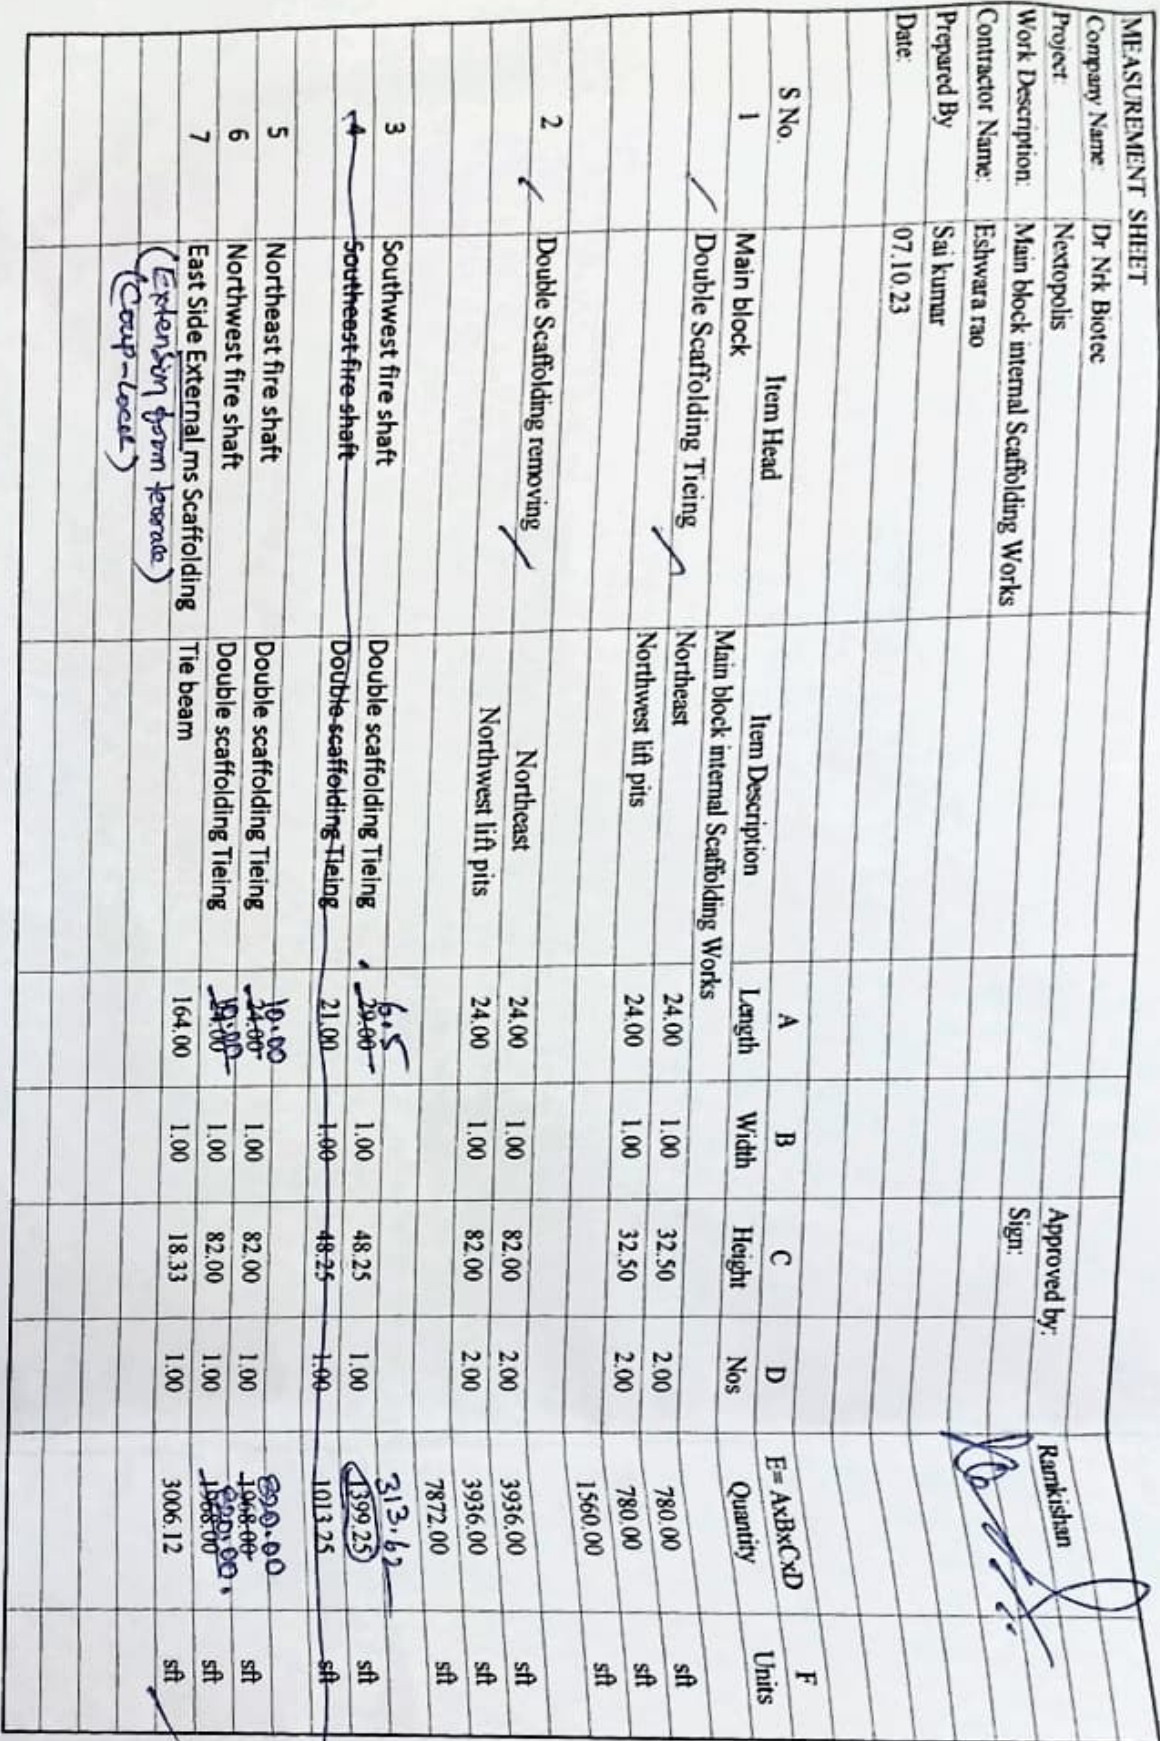 MEASUREMENT SHEET
Company Name: Dr Nrk Biotec
Project: Nextopolis Approved by: Ramkishan
Work Description: Main block internal Scaffolding Works Sign:
Contractor Name: Eshwara rao
Prepared By Sai kumar
Date: 07.10.23
A B C D E= AxBxCxD F
S No. Item Head Item Description Length Width Height Nos Quantity Units
1 Main block Main block internal Scaffolding Works
Double Scaffolding Tieing Northeast 24.00 1.00 32.50 2.00 780.00 sft
Northwest lift pits 24.00 1.00 32.50 2.00 780.00 sft
1560.00 sft
2 Double Scaffolding removing Northeast 24.00 1.00 82.00 2.00 3936.00 sft
Northwest lift pits 24.00 1.00 82.00 2.00 3936.00 sft
7872.00 sft
6.5 313.62
3 Southwest fire shaft Double scaffolding Tieing 29.00 1.00 48.25 1.00 1399.25 sft
4 Southeast fire shaft Double scaffolding Tieing 21.00 1.00 48.25 1.00 1013.25 sft
10.00 820.00
5 Northeast fire shaft Double scaffolding Tieing 24.00 1.00 82.00 1.00 1968.00 sft
10.00 820.00
6 Northwest fire shaft Double scaffolding Tieing 24.00 1.00 82.00 1.00 1968.00 sft
7 East Side External ms Scaffolding Tie beam 164.00 1.00 18.33 1.00 3006.12 sft
(Extension from terrace)
(Coup-Local)